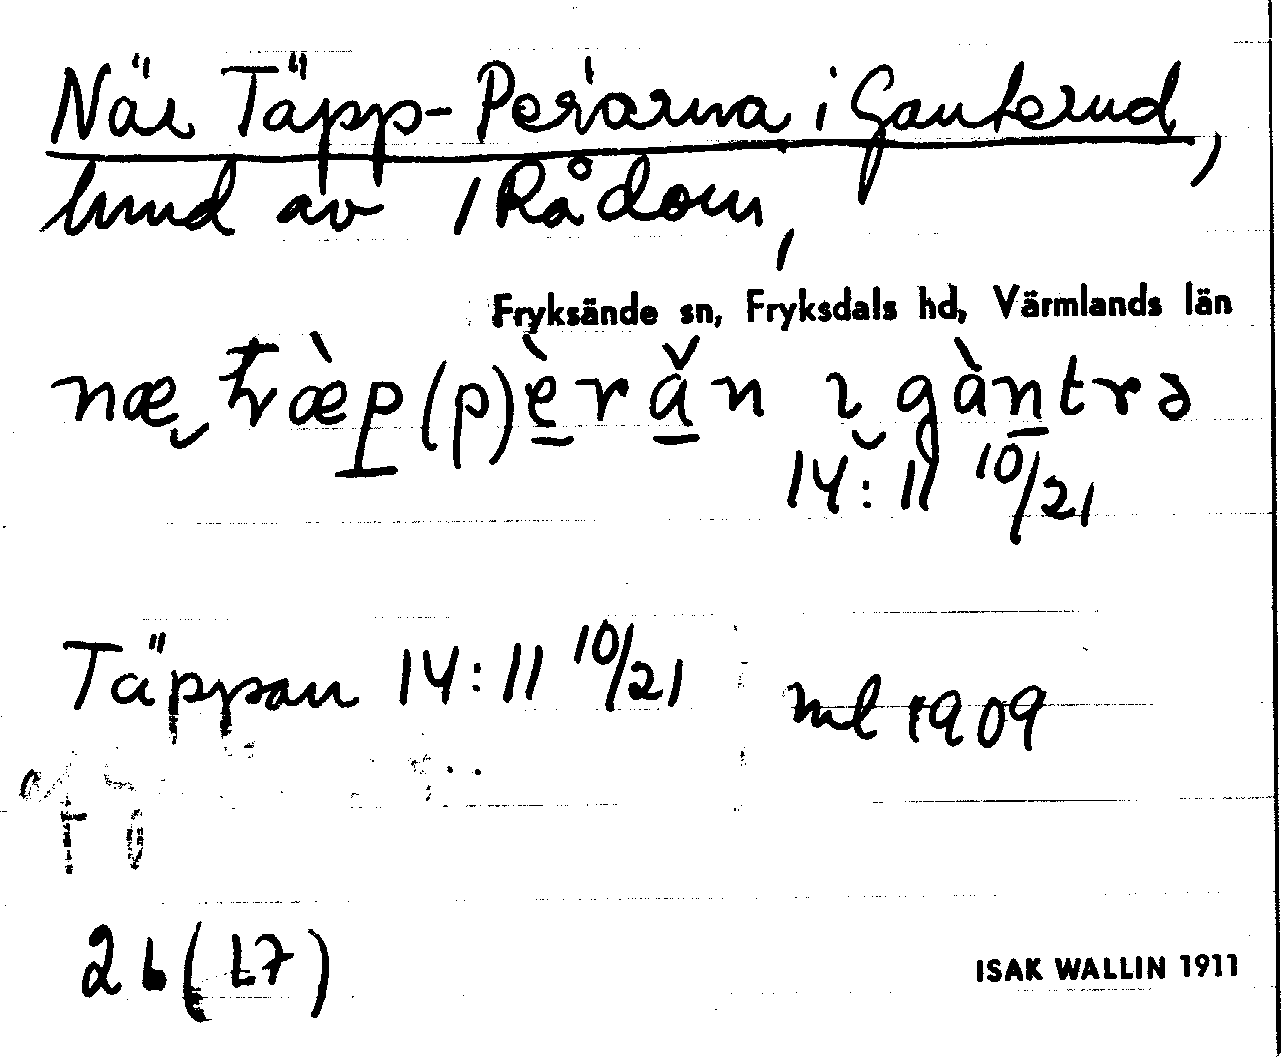 När Täpp-Per'arna i Ganterud,
hmd av i Rådom,
Fryksände sn, Fryksdals hd, Värmlands län
næ tæ̀p(p)è̱rǟn ı gàntrə
14:11 10/21
Täppan 14:11 10/21
ml 1909
ISAK WALLIN 1911